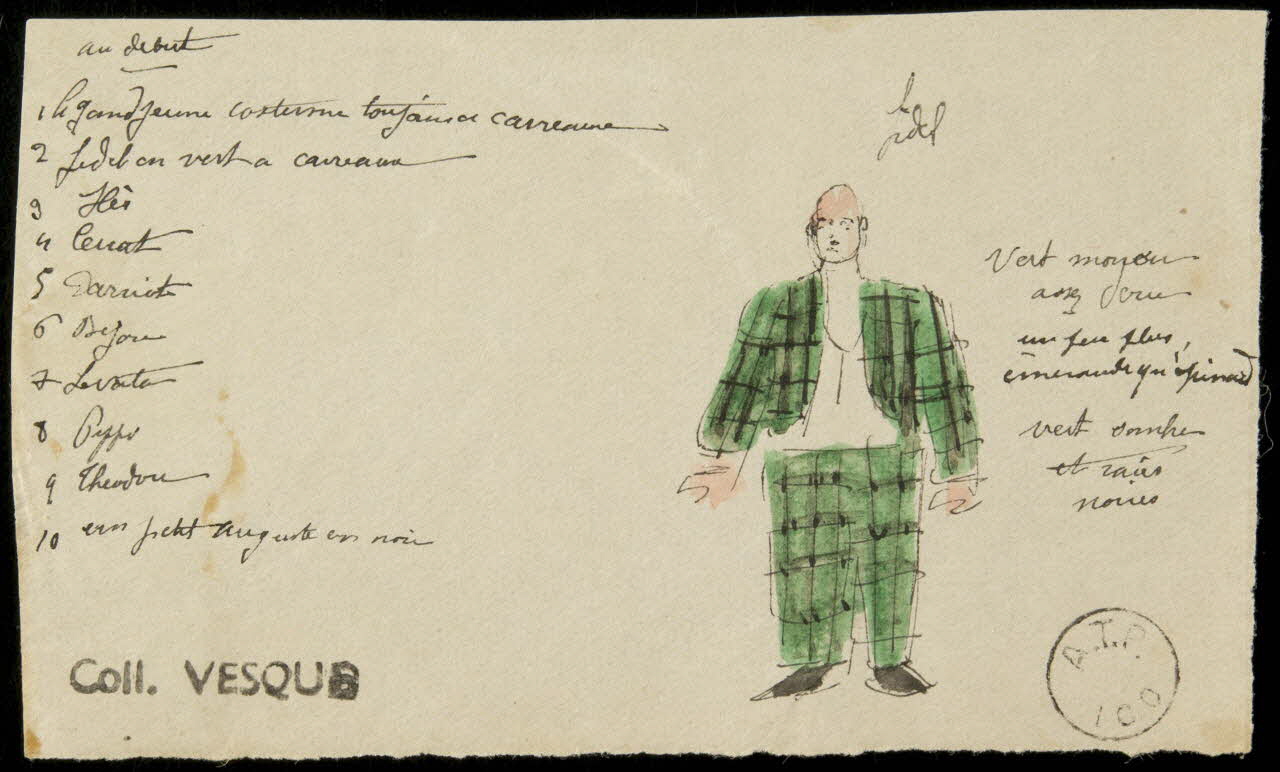 au debut
1 le grand jeune costume toujours a carreaux
2 fidel en vert a carreaux
3 Ilès
4 Cerrat
5 Darnet
6 Bijou
7 Levater
8 Peppo
9 Theodore
10 un petit auguste en noir
Coll. VESQUE
le
fidel
Vert moyen
assez cru
un peu plus,
émeraude qu'épinard
vert sombre
et raies
noires
A.T.P.
ICO